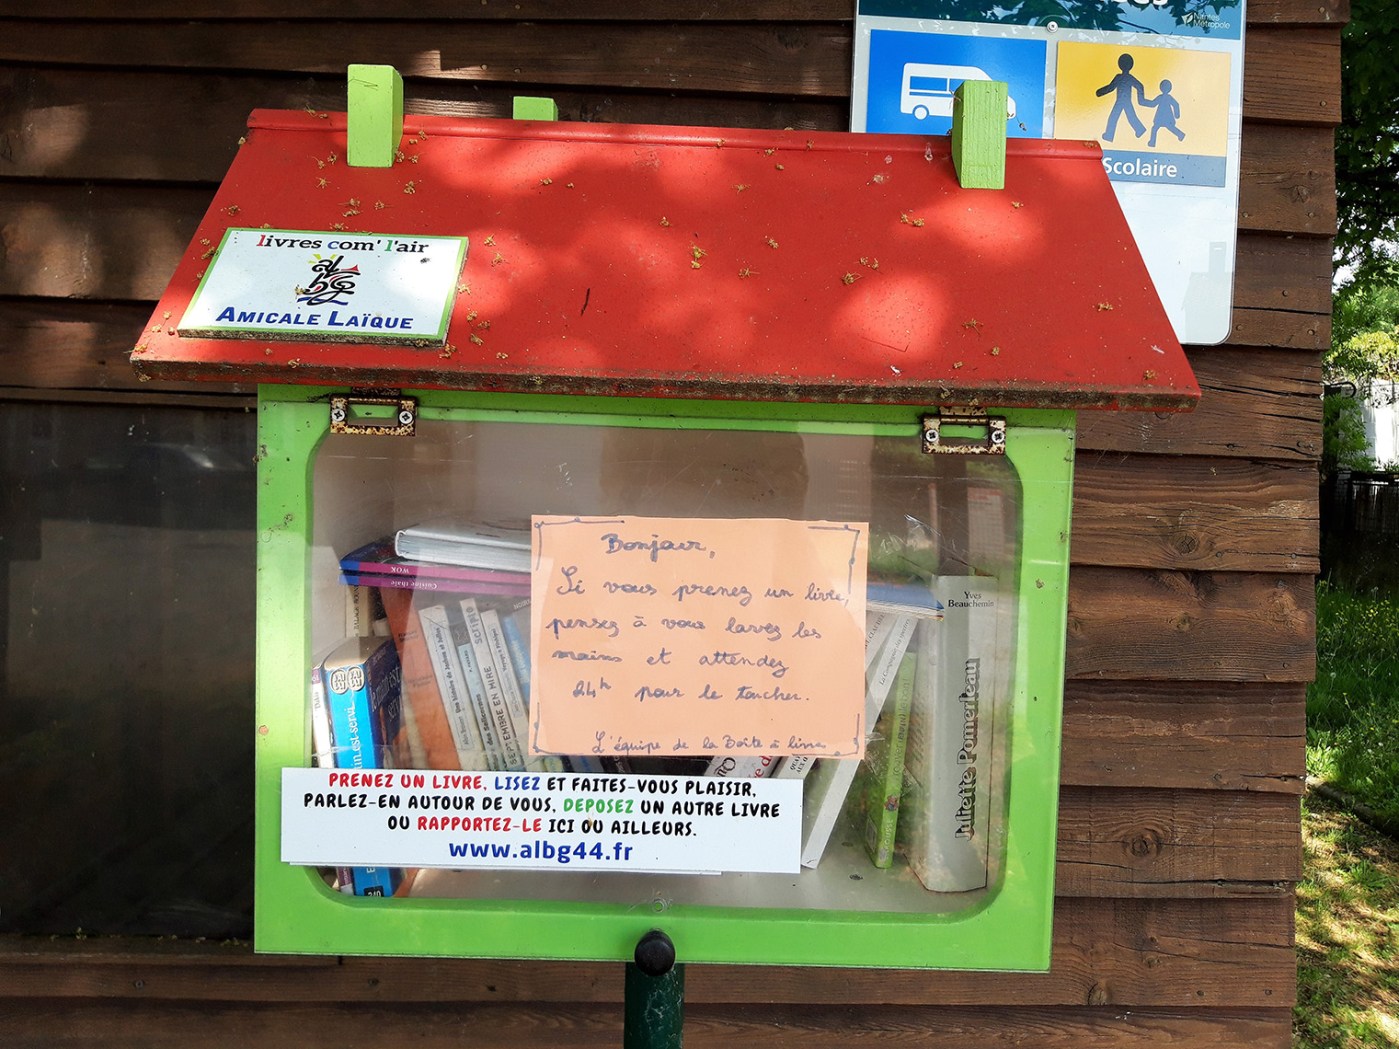 Nantes
Métropole
Scolaire
livres com' l'air
AMICALE LAÏQUE
Bonjour,
Si vous prenez un livre,
pensez à vous lavez les
mains et attendez
24h pour le toucher.
L'équipe de la Boîte à livres
WOK
Cuisine thaïe
SEPTEMBRE EN MIRE
un est servi
Yves
Beauchemin
Juliette Pomerleau
PRENEZ UN LIVRE, LISEZ ET FAITES-VOUS PLAISIR,
PARLEZ-EN AUTOUR DE VOUS, DEPOSEZ UN AUTRE LIVRE
OU RAPPORTEZ-LE ICI OU AILLEURS.
www.albg44.fr